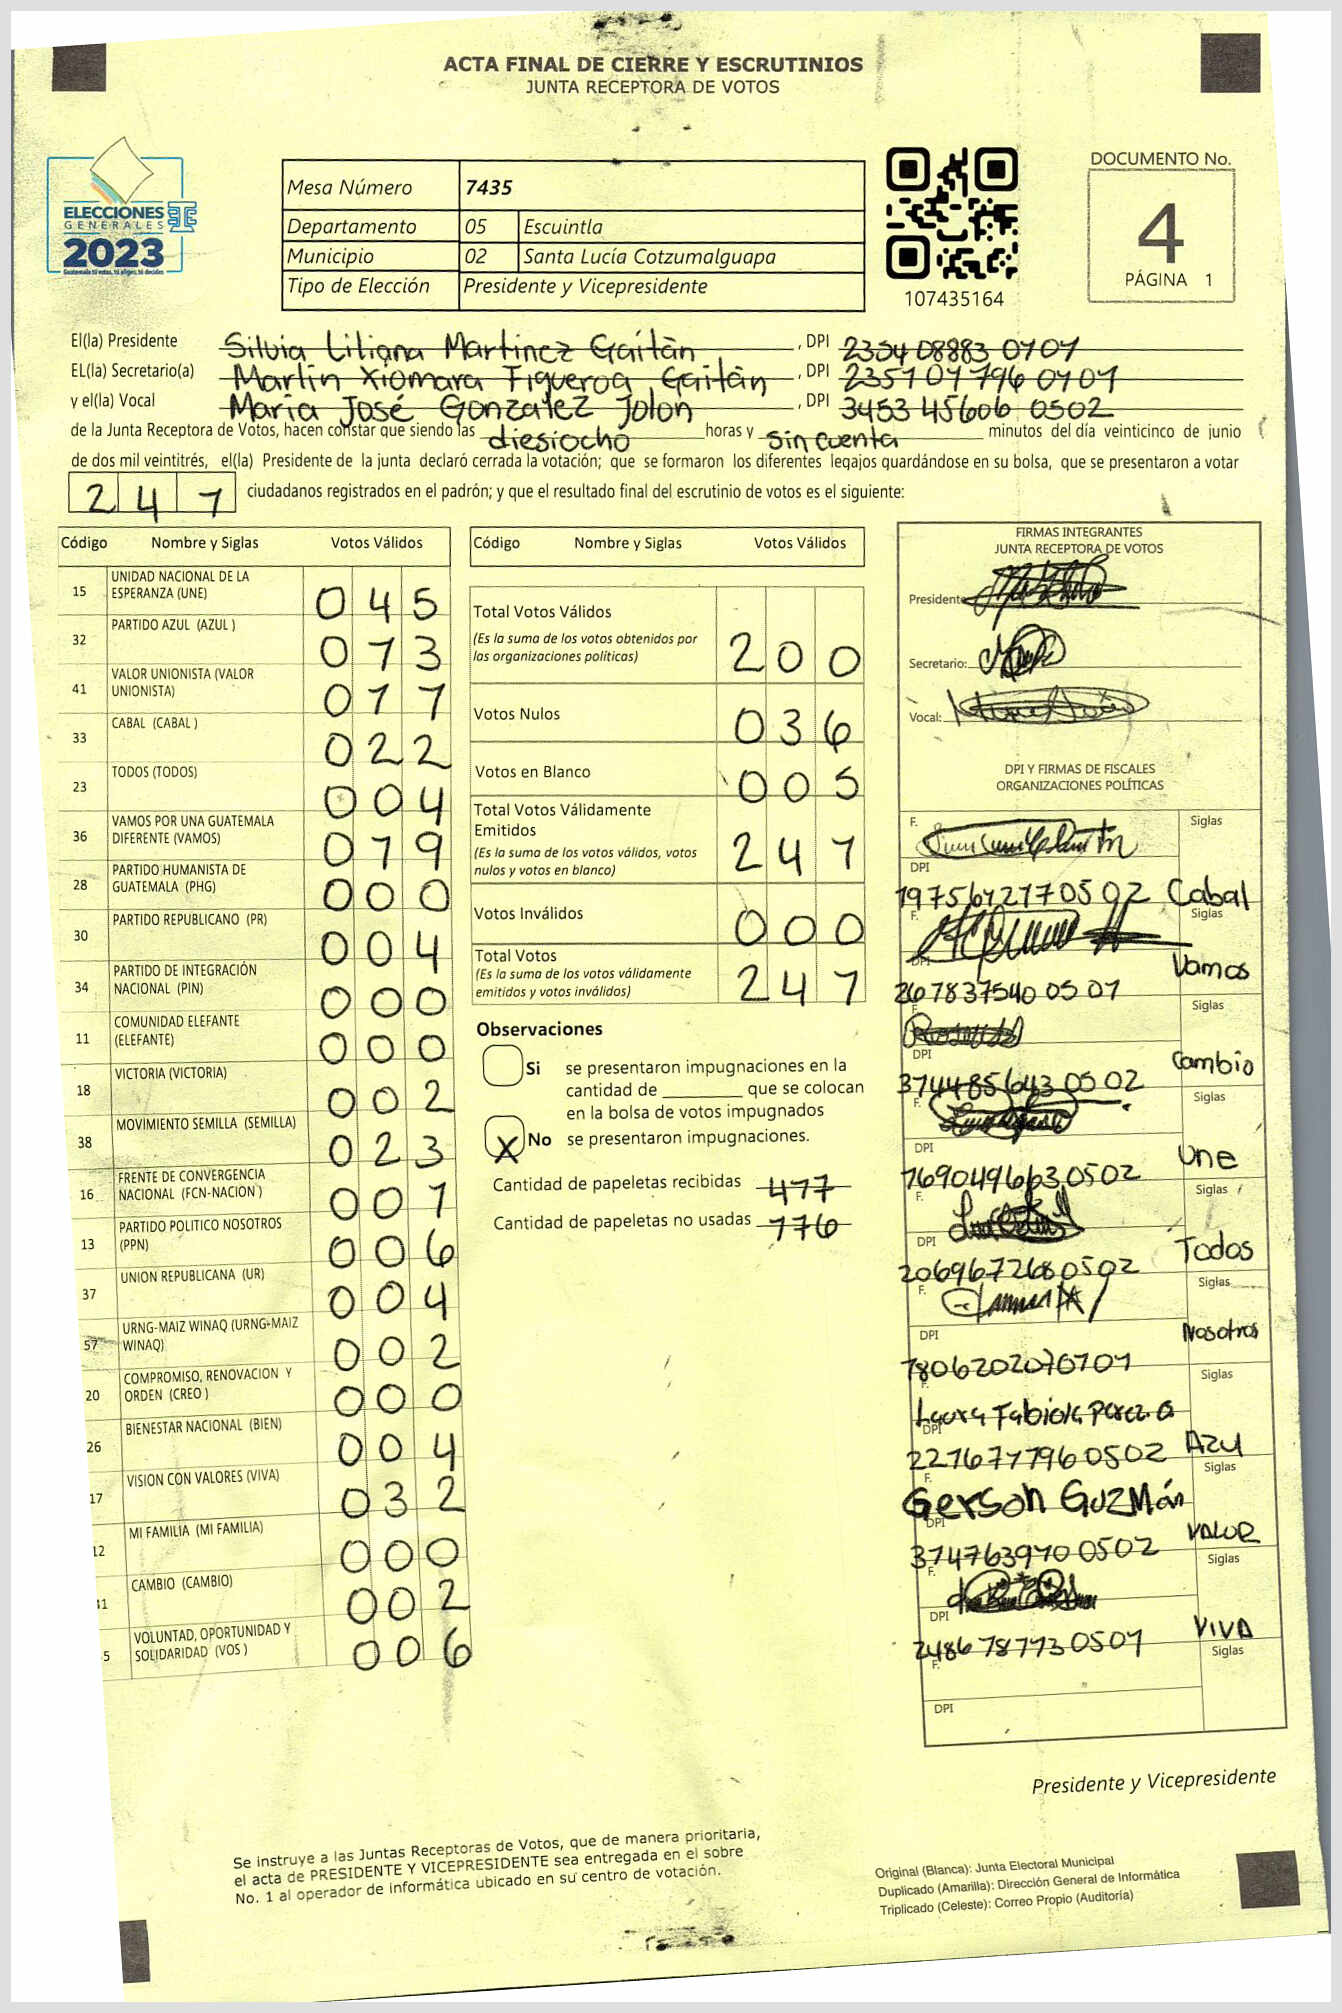 ACTA FINAL DE CIERRE Y ESCRUTINIOS
JUNTA RECEPTORA DE VOTOS
ELECCIONES
GENERALES
2023
Guatemala tú votas, tú eliges, tú decides
Mesa Número 7435
Departamento 05 Escuintla
Municipio 02 Santa Lucía Cotzumalguapa
Tipo de Elección Presidente y Vicepresidente
107435164
DOCUMENTO No.
4
PÁGINA 1
El(la) Presidente Silvia Liliana Martinez Gaitàn, DPI 2354 08883 0101
EL(la) Secretario(a) Marlin Xiomara Figueroa Gaitàn, DPI 2351 01796 0101
y el(la) Vocal Maria José Gonzalez Jolon, DPI 3453 45606 0502
de la Junta Receptora de Votos, hacen constar que siendo las diesiocho horas y sin cuenta minutos del día veinticinco de junio
de dos mil veintitrés, el(la) Presidente de la junta declaró cerrada la votación; que se formaron los diferentes legajos guardándose en su bolsa, que se presentaron a votar
247 ciudadanos registrados en el padrón; y que el resultado final del escrutinio de votos es el siguiente:
Código Nombre y Siglas Votos Válidos
15 UNIDAD NACIONAL DE LA ESPERANZA (UNE) 045
32 PARTIDO AZUL (AZUL ) 013
41 VALOR UNIONISTA (VALOR UNIONISTA) 011
33 CABAL (CABAL ) 022
23 TODOS (TODOS) 004
36 VAMOS POR UNA GUATEMALA DIFERENTE (VAMOS) 019
28 PARTIDO HUMANISTA DE GUATEMALA (PHG) 000
30 PARTIDO REPUBLICANO (PR) 004
34 PARTIDO DE INTEGRACIÓN NACIONAL (PIN) 000
11 COMUNIDAD ELEFANTE (ELEFANTE) 000
18 VICTORIA (VICTORIA) 002
38 MOVIMIENTO SEMILLA (SEMILLA) 023
16 FRENTE DE CONVERGENCIA NACIONAL (FCN-NACION ) 001
13 PARTIDO POLITICO NOSOTROS (PPN) 006
37 UNION REPUBLICANA (UR) 004
57 URNG-MAIZ WINAQ (URNG-MAIZ WINAQ) 002
20 COMPROMISO, RENOVACION Y ORDEN (CREO ) 000
26 BIENESTAR NACIONAL (BIEN) 004
17 VISION CON VALORES (VIVA) 032
12 MI FAMILIA (MI FAMILIA) 000
31 CAMBIO (CAMBIO) 002
5 VOLUNTAD, OPORTUNIDAD Y SOLIDARIDAD (VOS ) 006
Código Nombre y Siglas Votos Válidos
Total Votos Válidos 200
(Es la suma de los votos obtenidos por
las organizaciones políticas)
Votos Nulos 036
Votos en Blanco 005
Total Votos Válidamente
Emitidos 241
(Es la suma de los votos válidos, votos
nulos y votos en blanco)
Votos Inválidos 000
Total Votos 241
(Es la suma de los votos válidamente
emitidos y votos inválidos)
Observaciones
Si se presentaron impugnaciones en la
cantidad de ________ que se colocan
en la bolsa de votos impugnados
X No se presentaron impugnaciones.
Cantidad de papeletas recibidas 417
Cantidad de papeletas no usadas 176
FIRMAS INTEGRANTES
JUNTA RECEPTORA DE VOTOS
Presidente:
Secretario:
Vocal:
DPI Y FIRMAS DE FISCALES
ORGANIZACIONES POLÍTICAS
F. Siglas
DPI
1975642170502 Cabal
F. Siglas
DPI Vamos
267837540 0501
F. Siglas
DPI
3744856430502 Cambio
F. Siglas
DPI
1690496630502 Une
F. Siglas
DPI
2069672680502 Todos
F. Siglas
DPI Nosotros
1806202070101
F. Siglas
Laura Fabiola Perez G
DPI
2216711960502 Azul
F. Siglas
Gerson GuzMán
DPI
3747639700502 VALOR
F. Siglas
DPI
2486787730501 VIVA
F. Siglas
DPI
Presidente y Vicepresidente
Se instruye a las Juntas Receptoras de Votos, que de manera prioritaria,
el acta de PRESIDENTE Y VICEPRESIDENTE sea entregada en el sobre
No. 1 al operador de informática ubicado en su centro de votación.
Original (Blanca): Junta Electoral Municipal
Duplicado (Amarilla): Dirección General de Informática
Triplicado (Celeste): Correo Propio (Auditoría)